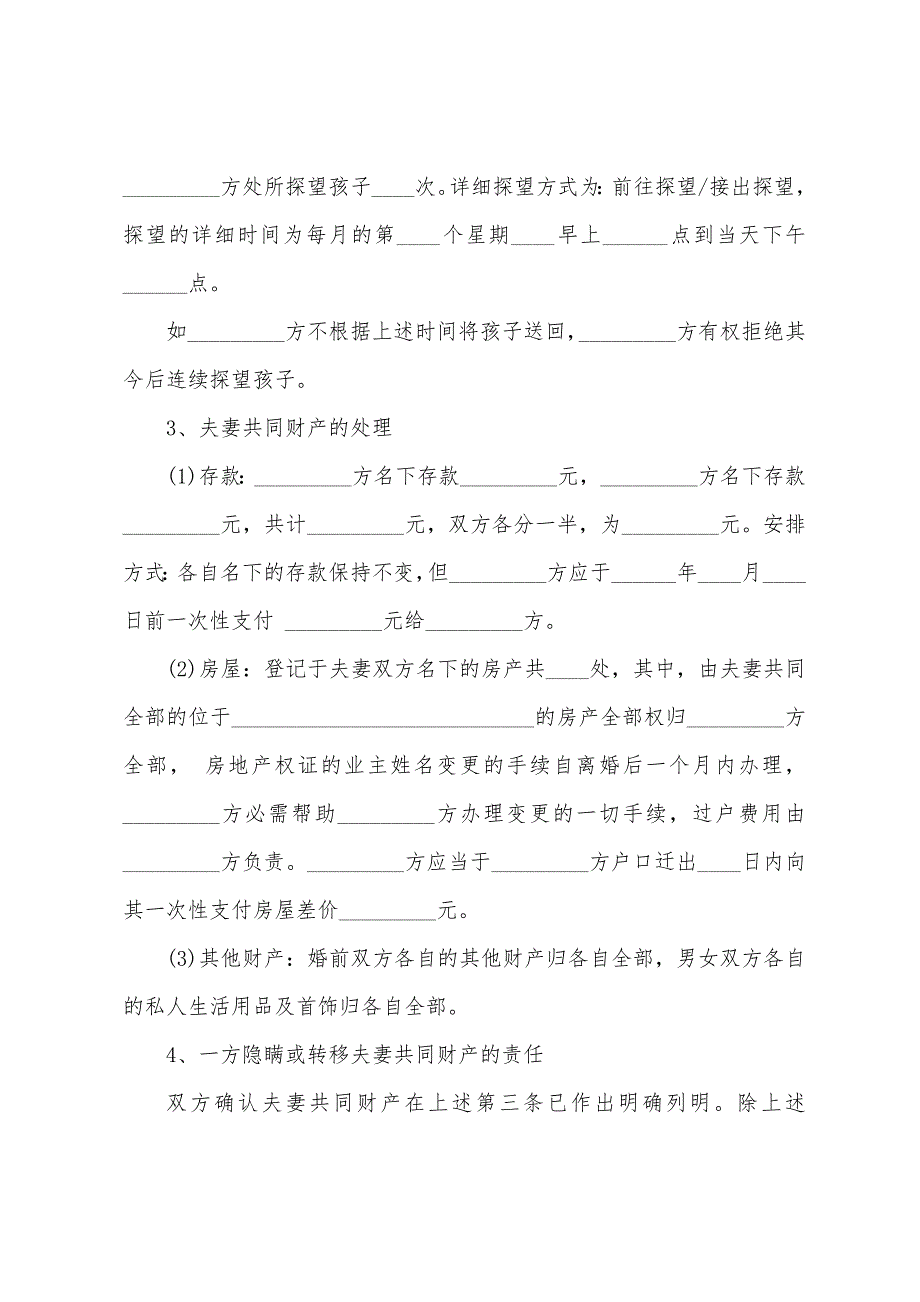 _________方处所探望孩子____次。详细探望方式为：前往探望/接出探望，
探望的详细时间为每月的第____个星期____早上______点到当天下午
______点。
如_________方不根据上述时间将孩子送回，_________方有权拒绝其
今后连续探望孩子。
3、夫妻共同财产的处理
(1)存款：_________方名下存款_________元，_________方名下存款
_________元，共计_________元，双方各分一半，为_________元。安排
方式：各自名下的存款保持不变，但_________方应于______年____月____
日前一次性支付 _________元给_________方。
(2)房屋：登记于夫妻双方名下的房产共____处，其中，由夫妻共同
全部的位于____________________________的房产全部权归_________方
全部， 房地产权证的业主姓名变更的手续自离婚后一个月内办理，
_________方必需帮助_________方办理变更的一切手续，过户费用由
_________方负责。_________方应当于_________方户口迁出____日内向
其一次性支付房屋差价_________元。
(3)其他财产：婚前双方各自的其他财产归各自全部，男女双方各自
的私人生活用品及首饰归各自全部。
4、一方隐瞒或转移夫妻共同财产的责任
双方确认夫妻共同财产在上述第三条已作出明确列明。除上述